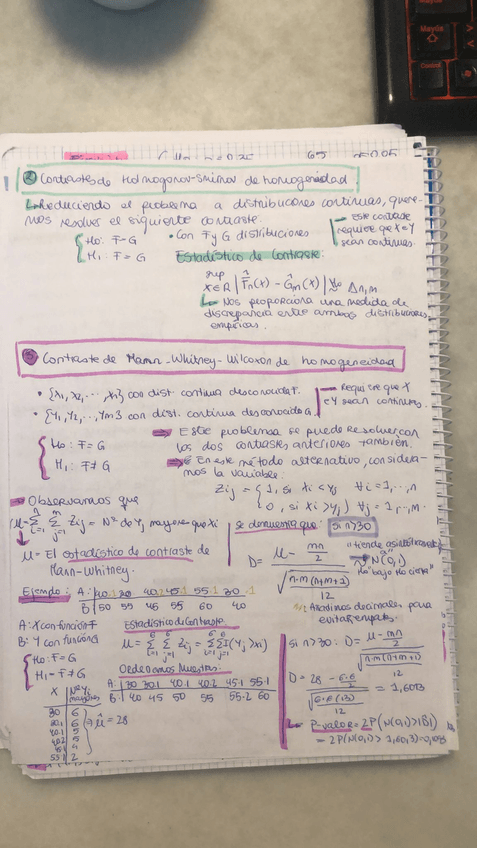 ② Contrastes de Homogorov-Smirnov de homogeneidad
Reduciendo el problema a distribuciones continuas, quere-
mos resolver el siguiente contraste:
H₀: F=G
H₁: F≠G
• Con F y G distribuciones
Este contraste
requiere que X e Y
sean continuas.
Estadístico de Contraste:
sup x∈R |F̂n(x) - Ĝm(x)| Δn,m
Nos proporciona una medida de
discrepancia entre ambas distribuciones
empíricas.
③ Contraste de Mann-Whitney-Wilcoxon de homogeneidad
• {X₁, X₂, ..., Xn} con dist. continua desconocida F.
• {Y₁, Y₂, ..., Ym} con dist. continua desconocida G.
Requiere que X
e Y sean continuas.
H₀: F=G
H₁: F≠G
⇒ Este problema se puede resolver con
los dos contrastes anteriores también.
⇒ En este método alternativo, considera-
mos la variable:
Zij = {1, si Xi < Yj ∀i=1,..,n
0, si Xi > Yj ∀j=1,..,m.
Observamos que
μ = Σ Σ Zij = Nº de Yj mayores que Xi
μ = El estadístico de contraste de
Mann-Whitney.
Se demuestra que: si n>30
D = (μ - mn/2) / √(n·m(n+m+1)/12) N(0,1)
"tiende asintóticamente a"
"bajo H₀ cierta"
Añadimos decimales para
evitar empates.
Ejemplo: A: 40.1 30 40.2 45.1 55.1 30.1
B: 50 55 45 55 60 40
A: X con función F
B: Y con función G
H₀: F=G
H₁: F≠G
Estadístico de Contraste:
μ = Σ Σ Zij = Σ Σ I(Yj > Xi)
Ordenamos Muestras:
A: 30 30.1 40.1 40.2 45.1 55.1
B: 40 45 50 55 55.2 60
X | Nº Yj mayores
30 | 6
30.1 | 6
40.1 | 5
40.2 | 5
45.1 | 4
55.1 | 2
⇒ μ = 28
si n>30: D = (μ - mn/2) / √(n·m(n+m+1)/12)
D = (28 - 6·6/2) / √(6·6(13)/12) = 1,6013
P-valor = 2P(N(0,1)>|D|)
= 2P(N(0,1)>